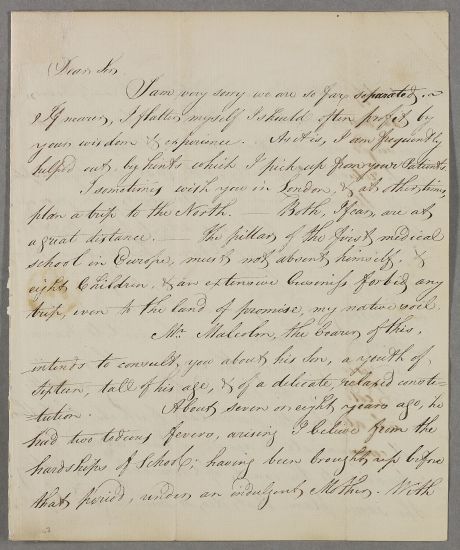 Dear Sir
I am very sorry we are so far separated. a
& If nearer, I flatter myself I should often profit by
your wisdom & experience. As it is, I am frequently
helped out, by hints which I pick up from your Patients.
I sometimes wish you in London, & at other times,
plan a trip to the North. — Both, I fear, are at
a great distance. — The pillar of the first medical
school in Europe, must not absent himself. &
eight Children, & an extensive Business forbid any
trip, even to the land of promise, my native soil.
Mr. Malcolm, the bearer of this,
intends to consult you about his Son, a youth of
sixteen, tall of his age, & of a delicate, relaxed consti-
tution. About seven or eight years ago, he
had two tedious fevers, arising I believe from the
hardships of School; having been brought up before
that period, under an indulgent Mother. With